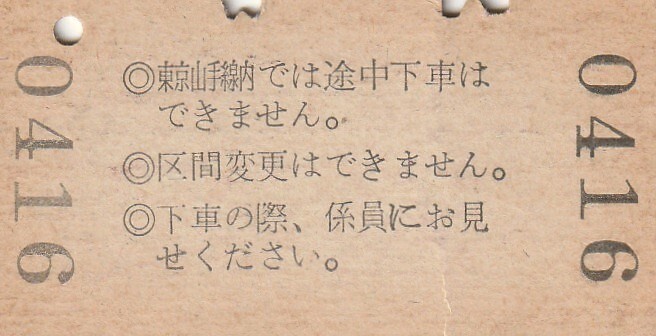 0416
◎東京山手線内では途中下車は
できません。
◎区間変更はできません。
◎下車の際、係員にお見
せください。
0416